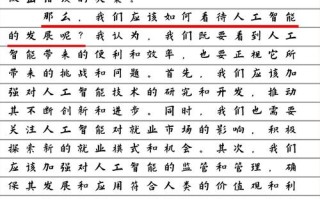 那么，我们应该如何看待人工智能
的发展呢？我认为，我们既要看到人工
智能带来的便利和效率，也要正视它所
带来的挑战和问题。首先，我们应该加
强对人工智能技术的研究和开发，推动
其不断创新和进步。同时，我们也需要
关注人工智能对就业市场的影响，积极
探索新的就业模式和机会。其次，我们
应该加强对人工智能的监管和管理，确
保其发展和应用符合人类的价值观和利